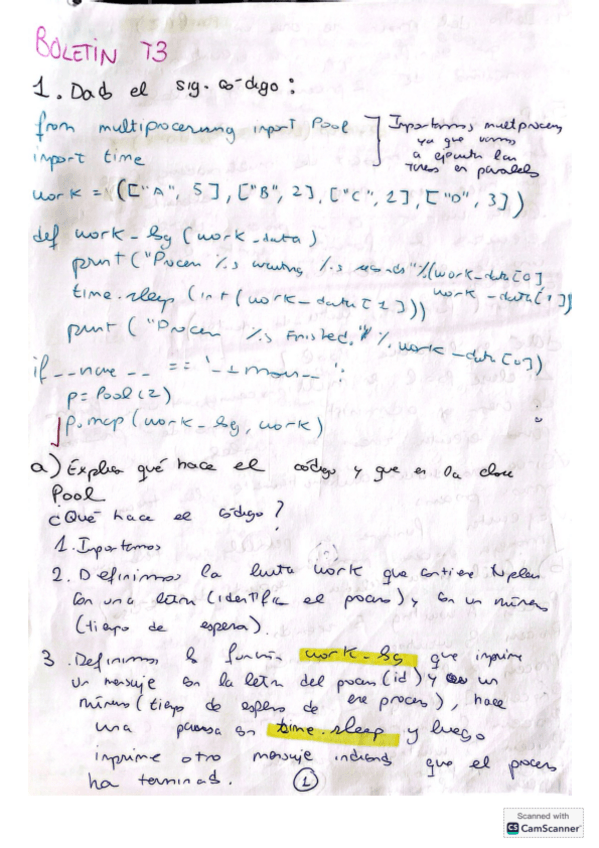 BOLETIN T3
1. Dado el sig. código:
from multiprocessing import Pool
Importamos multiprocess
ya que vamos
import time
a ejecutar las
tareas en paralelo
work = (["A", 5], ["B", 2], ["C", 2], ["D", 3])
def work_log (work_data)
print ("Process %s waiting %s seconds" % (work_data[0]
work_data[1]))
time.sleep (int (work_data[1]))
print ("Process %s Finished." % work_data[0])
if __name__ == '__main__':
p = Pool (2)
p.map (work_log, work)
a) Explica qué hace el código y que es la clase
Pool
¿Qué hace el código?
1. Importamos
2. Definimos la lista work que contiene tuplas
con una letra (identifica el proceso) y con un número
(tiempo de espera).
3. Definimos la función work_log que imprime
un mensaje con la letra del proceso (id) y un
número (tiempo de espera de ese proceso), hace
una pausa con time.sleep y luego
imprime otro mensaje indicando que el proceso
ha terminado.
1
Scanned with
CS CamScanner